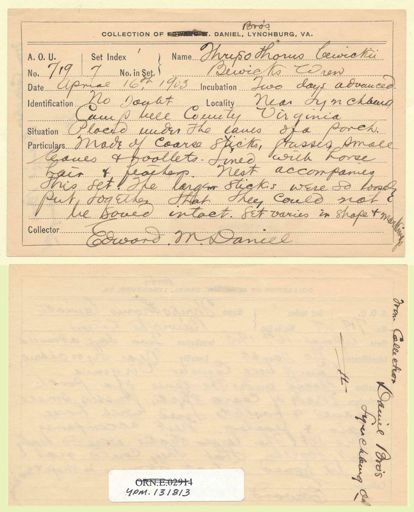 Bro's
COLLECTION OF EDWARD M. DANIEL, LYNCHBURG, VA.
A. O. U. Set Index Name Thryothorus bewickii
No. 719 7 No. in Set. Bewick's Wren
April 16th 1903 Incubation Two days advanced
Identification No Doubt Locality Near Lynchburg
Campbell County Virginia
Situation Placed under the eaves of a Porch.
Particulars Made of Coarse Sticks, grasses, small
leaves & rootlets. Lined with horse
hair & feathers. Nest accompanies
this set. The larger sticks were so loosely
put together that they could not
be saved intact. Set varies in shape & markings
Collector Edward M Daniel
From Collection
Daniel Bro's
Lynchburg Va
ORN.E.02914
YPM. 131813